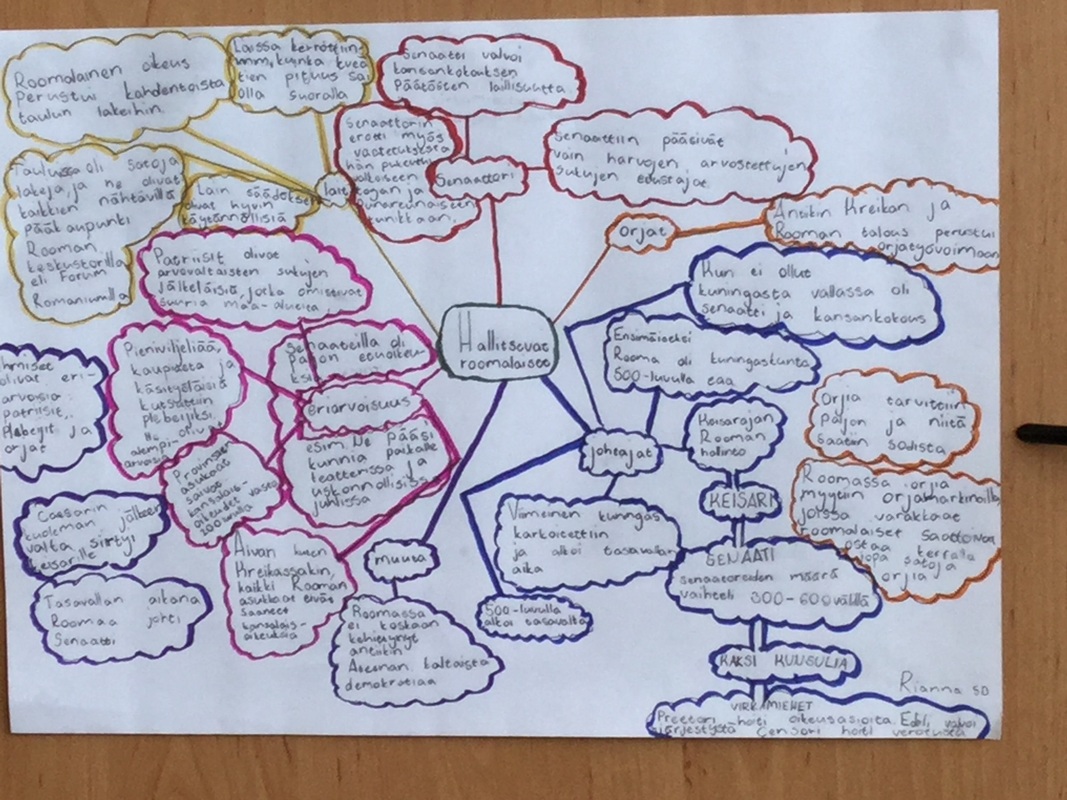 Hallitsevat
roomalaiset
Roomalainen oikeus
perustui kahdentoista
taulun lakeihin.
Laissa kerrottiin
mm, kuinka
tien pituus sai
olla suoralla
Tauluissa oli satoja
lakeja, ja ne olivat
kaikkien nähtävillä
pääkaupunki
Rooman
keskustorilla
eli Forum
Romanumilla
Lain säädökset
olivat hyvin
käytännöllisiä
lait
Senaatti valvoi
kansankokouksen
päätösten laillisuutta
Senaattorin
erotti myös
vaatetuksesta
hän pukeutui
valkoiseen
togan ja
punareunaiseen
tunikkaan.
Senaattori
Senaattiin pääsivät
vain harvojen arvostettujen
sukujen edustajat
Orjat
Antiikin Kreikan ja
Rooman talous perustui
orjatyövoimaan
Orjia tarvittiin
paljon ja niitä
saatiin sodista
Roomassa orjia
myytiin orjamarkkinoilla,
jossa varakkaat
roomalaiset saattoivat
ostaa kerralla
jopa satoja
orjia
Kun ei ollut
kuningasta vallassa oli
senaatti ja kansankokous
Ensimäiseksi
Rooma oli kuningaskunta
500-luvulla eaa
johtajat
Keisarajan
Rooman
hallinto
KEISARI
SENAATI
senaatoreiden määrä
vaihteli 300-600 välillä
KAKSI KUNSULIA
VIRKAMIEHET
Preetori hoiti oikeusasioita. Edili valvoi
järjestystä Censori hoiti verotusta
Viimeinen kuningas
karkoitettiin
ja alkoi tasavallan
aika
500-luvulla
alkoi tasavalta
Patriisit olivat
arvovaltaisten sukujen
jälkeläisiä, jotka omistivat
suuria maa-alueita
Senaateilla oli
paljon etuoikeu
Eriarvoisuus
esim. Ne pääsi
kunnia paikalle
teatterissa ja
uskonnollisissa
juhlissa
Pienviljeliää,
kaupiaita ja
käsityöläisiä
kutsuttiin
plebeijiksi.
He olivat
alempi-
arvoisia
Provinssien
asukkaat
saivat
kansalais-
oikeudet vasta
200 luvulla
Aivan kuten
Kreikassakin,
kaikki Rooman
asukkaat eivät
saaneet
kansalais-
oikeuksia
Ihmiset
olivat eri-
arvoisia
patriisit,
plebeijit ja
orjat
Caesarin
kuoleman jälkeen
valta siirtyi
keisarille
Tasavallan aikana
Roomaa johti
Senaatti
muuta
Roomassa
ei koskaan
kehittynyt
antiikin
Ateenan kaltaista
demokratiaa
Rianna 5D